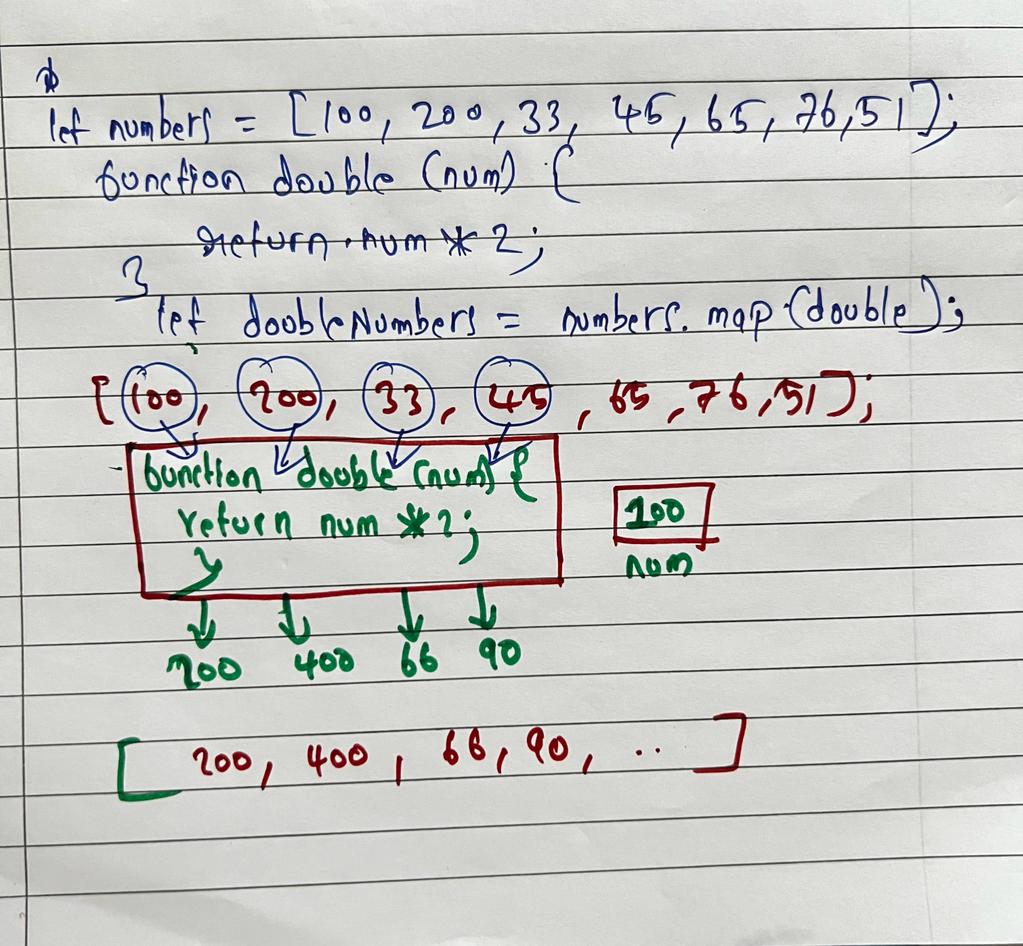 let numbers = [100, 200, 33, 45, 65, 76, 51];
function double (num) {
return num * 2;
}
let doubleNumbers = numbers.map(double);
[100, 200, 33, 45, 65, 76, 51];
function double (num) {
return num * 2;
}
100
num
200 400 66 90
[ 200, 400, 66, 90, .. ]